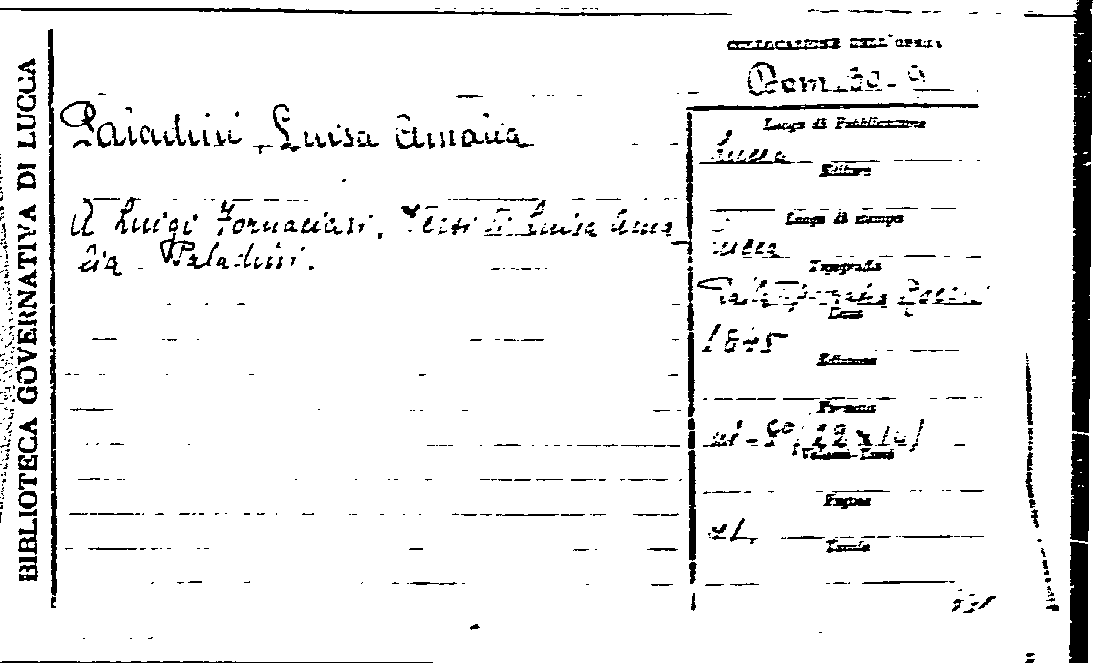 BIBLIOTECA GOVERNATIVA DI LUCCA
COLLOCAZIONE DELL'OPERA
Paladini, Luisa Amalia
A Luigi Fornaciari. Versi di Luisa Ama
lia Paladini.
Luogo di Pubblicazione
Lucca
Editore
Luogo di stampa
Lucca
Tipografia
Dalla
Anno
1845
Edizione
Formato
in-8º (22 x 14)
Volumi-Tomi
Pagine
Tavole